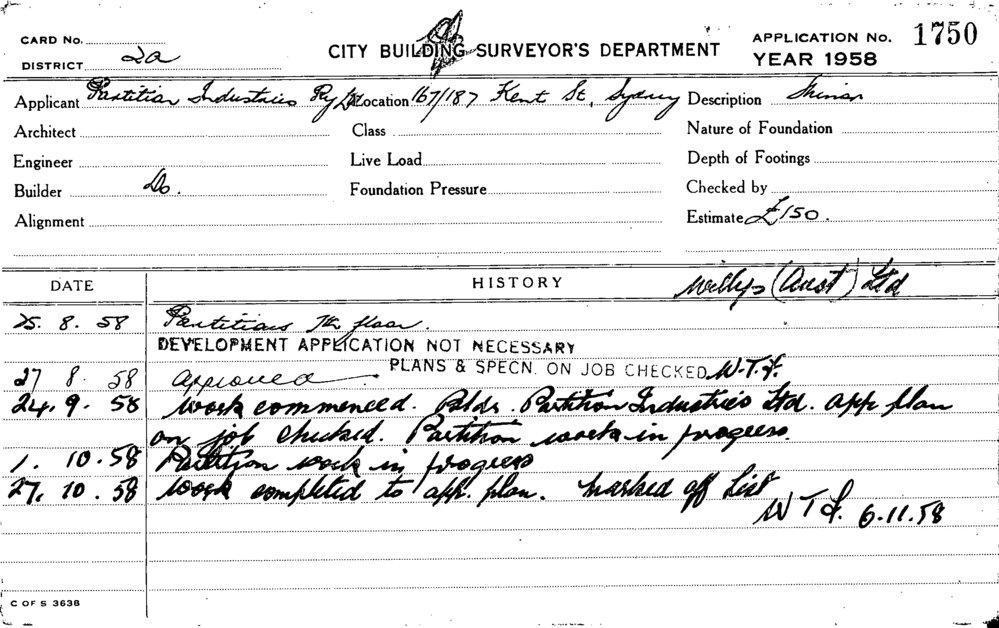 CARD No.
DISTRICT 2a
CITY BUILDING SURVEYOR'S DEPARTMENT
APPLICATION No. 1750
YEAR 1958
Applicant Partition Industries Pty Ltd Location 167/187 Kent St, Sydney Description Minor
Architect Class Nature of Foundation
Engineer Live Load Depth of Footings
Builder Do. Foundation Pressure Checked by
Alignment Estimate £150.
DATE HISTORY Willys (Aust) Ltd
25. 8. 58 Partitions 7th floor.
DEVELOPMENT APPLICATION NOT NECESSARY
PLANS & SPECN. ON JOB CHECKED W.T.
27 8. 58 Approved
24. 9. 58 Work commenced. Bldr. Partition Industries Ltd. app plan
on job checked. Partition work in progress.
1. 10. 58 Partition work in progress
27. 10. 58 Work completed to app. plan. Marked off List
W T 6.11.58
C OF S 3638